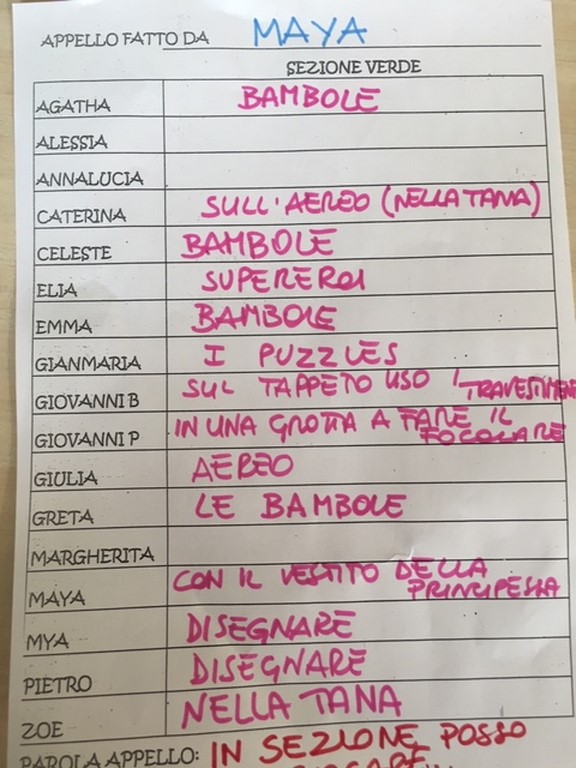 APPELLO FATTO DA MAYA
SEZIONE VERDE
AGATHA BAMBOLE
ALESSIA
ANNALUCIA
CATERINA SULL'AEREO (NELLA TANA)
CELESTE BAMBOLE
ELIA SUPEREROI
EMMA BAMBOLE
GIANMARIA I PUZZLES
GIOVANNI B SUL TAPPETO USO I TRAVESTIMEN
GIOVANNI P IN UNA GROTTA A FARE IL
FOCOLARE
GIULIA AEREO
GRETA LE BAMBOLE
MARGHERITA
MAYA CON IL VESTITO DELLA
PRINCIPESSA
MYA DISEGNARE
PIETRO DISEGNARE
ZOE NELLA TANA
PAROLA APPELLO: IN SEZIONE POSSO